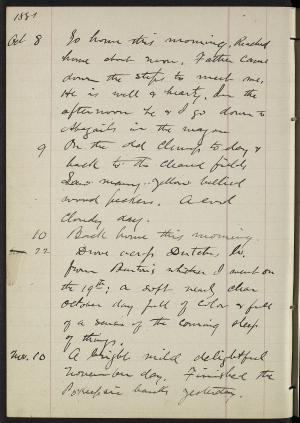 1881
Oct 8 Go home this morning, Reached
home about noon. Father came
down the steps to meet me,
He is well & hearty. In the
afternoon he & I go down to
Abigails in the wagon
9 On the old Clump to day &
back to the cleared fields
Saw many yellow bellied
wood peckers. A cool
cloudy day.
10 Back home this morning
22 Drove across Dutchess Co.
from whither I went on
the 19th; a soft nearly clear
October day full of color & full
of a sense of the coming sleep
of things.
Nov. 10 A bright mild delightful
November day. Finished the
banks yesterday.